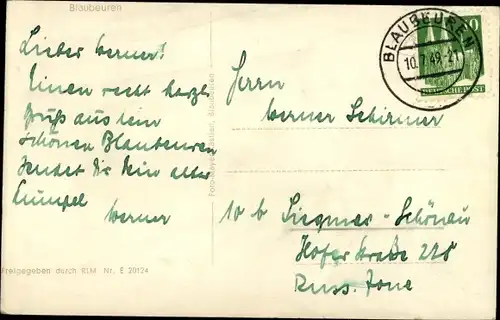 Blaubeuren
Lieber Werner!
Einen recht herzl.
Gruß aus dem
schönen Blaubeuren
sendet Dir Dein alter
Kumpel
Werner
Freigegeben durch RLM Nr. E 20124
BLAUBEUREN
10.7.49.-21
DEUTSCHE POST
Herrn
Werner Schirmer
10 b Siegmar-Schönau
Hofer Straße 228
Russ. Zone